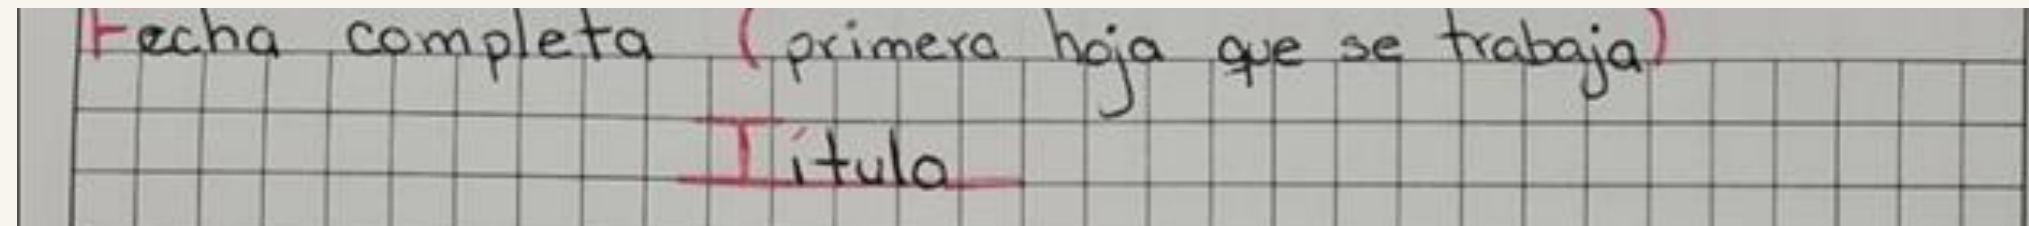 Fecha completa (primera hoja que se trabaja)
Título